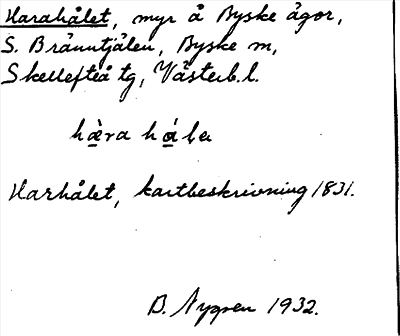 Harahålet, myr å Byske ägor,
S. Bränntjälen, Byske sn,
Skellefteå tg, Västerb. l.
hæ̀ra hó̤la
Harhålet, kartbeskrivning 1831.
B. Nygren 1932.